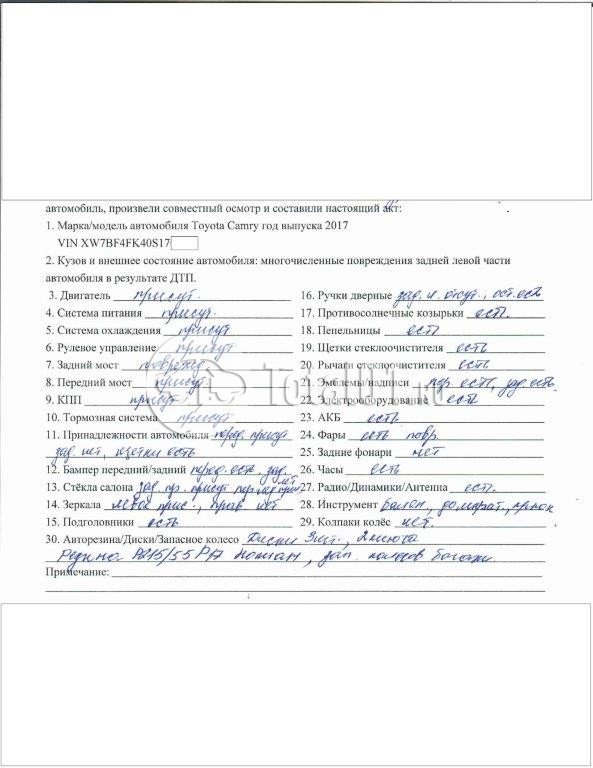 автомобиль, произвели совместный осмотр и составили настоящий акт:
1. Марка/модель автомобиля Toyota Camry год выпуска 2017
VIN XW7BF4FK40S17
2. Кузов и внешнее состояние автомобиля: многочисленные повреждения задней левой части
автомобиля в результате ДТП.
3. Двигатель присут.
4. Система питания присут.
5. Система охлаждения присут
6. Рулевое управление присут
7. Задний мост поврежд
8. Передний мост присут.
9. КПП присут
10. Тормозная система присут
11. Принадлежности автомобиля перед. присут
зад нет, щетки есть
12. Бампер передний/задний перед. есть, зад. нет
13. Стёкла салона зад. пр. присут
14. Зеркала левое прис., прав нет
15. Подголовники есть
16. Ручки дверные зад. л. отсут., ост. есть
17. Противосолнечные козырьки есть.
18. Пепельницы есть
19. Щетки стеклоочистителя есть
20. Рычаги стеклоочистителя есть
21. Эмблемы/надписи пер. есть, зад. есть.
22. Электрооборудование есть
23. АКБ есть
24. Фары есть повр.
25. Задние фонари нет
26. Часы есть
27. Радио/Динамики/Антенна есть.
28. Инструмент балон, домкрат, крюк
29. Колпаки колёс нет.
30. Авторезина/Диски/Запасное колесо Диски 3шт.,
Резина R215/55 R17 , зап. колесо в багажн.
Примечание:
Total01.ru